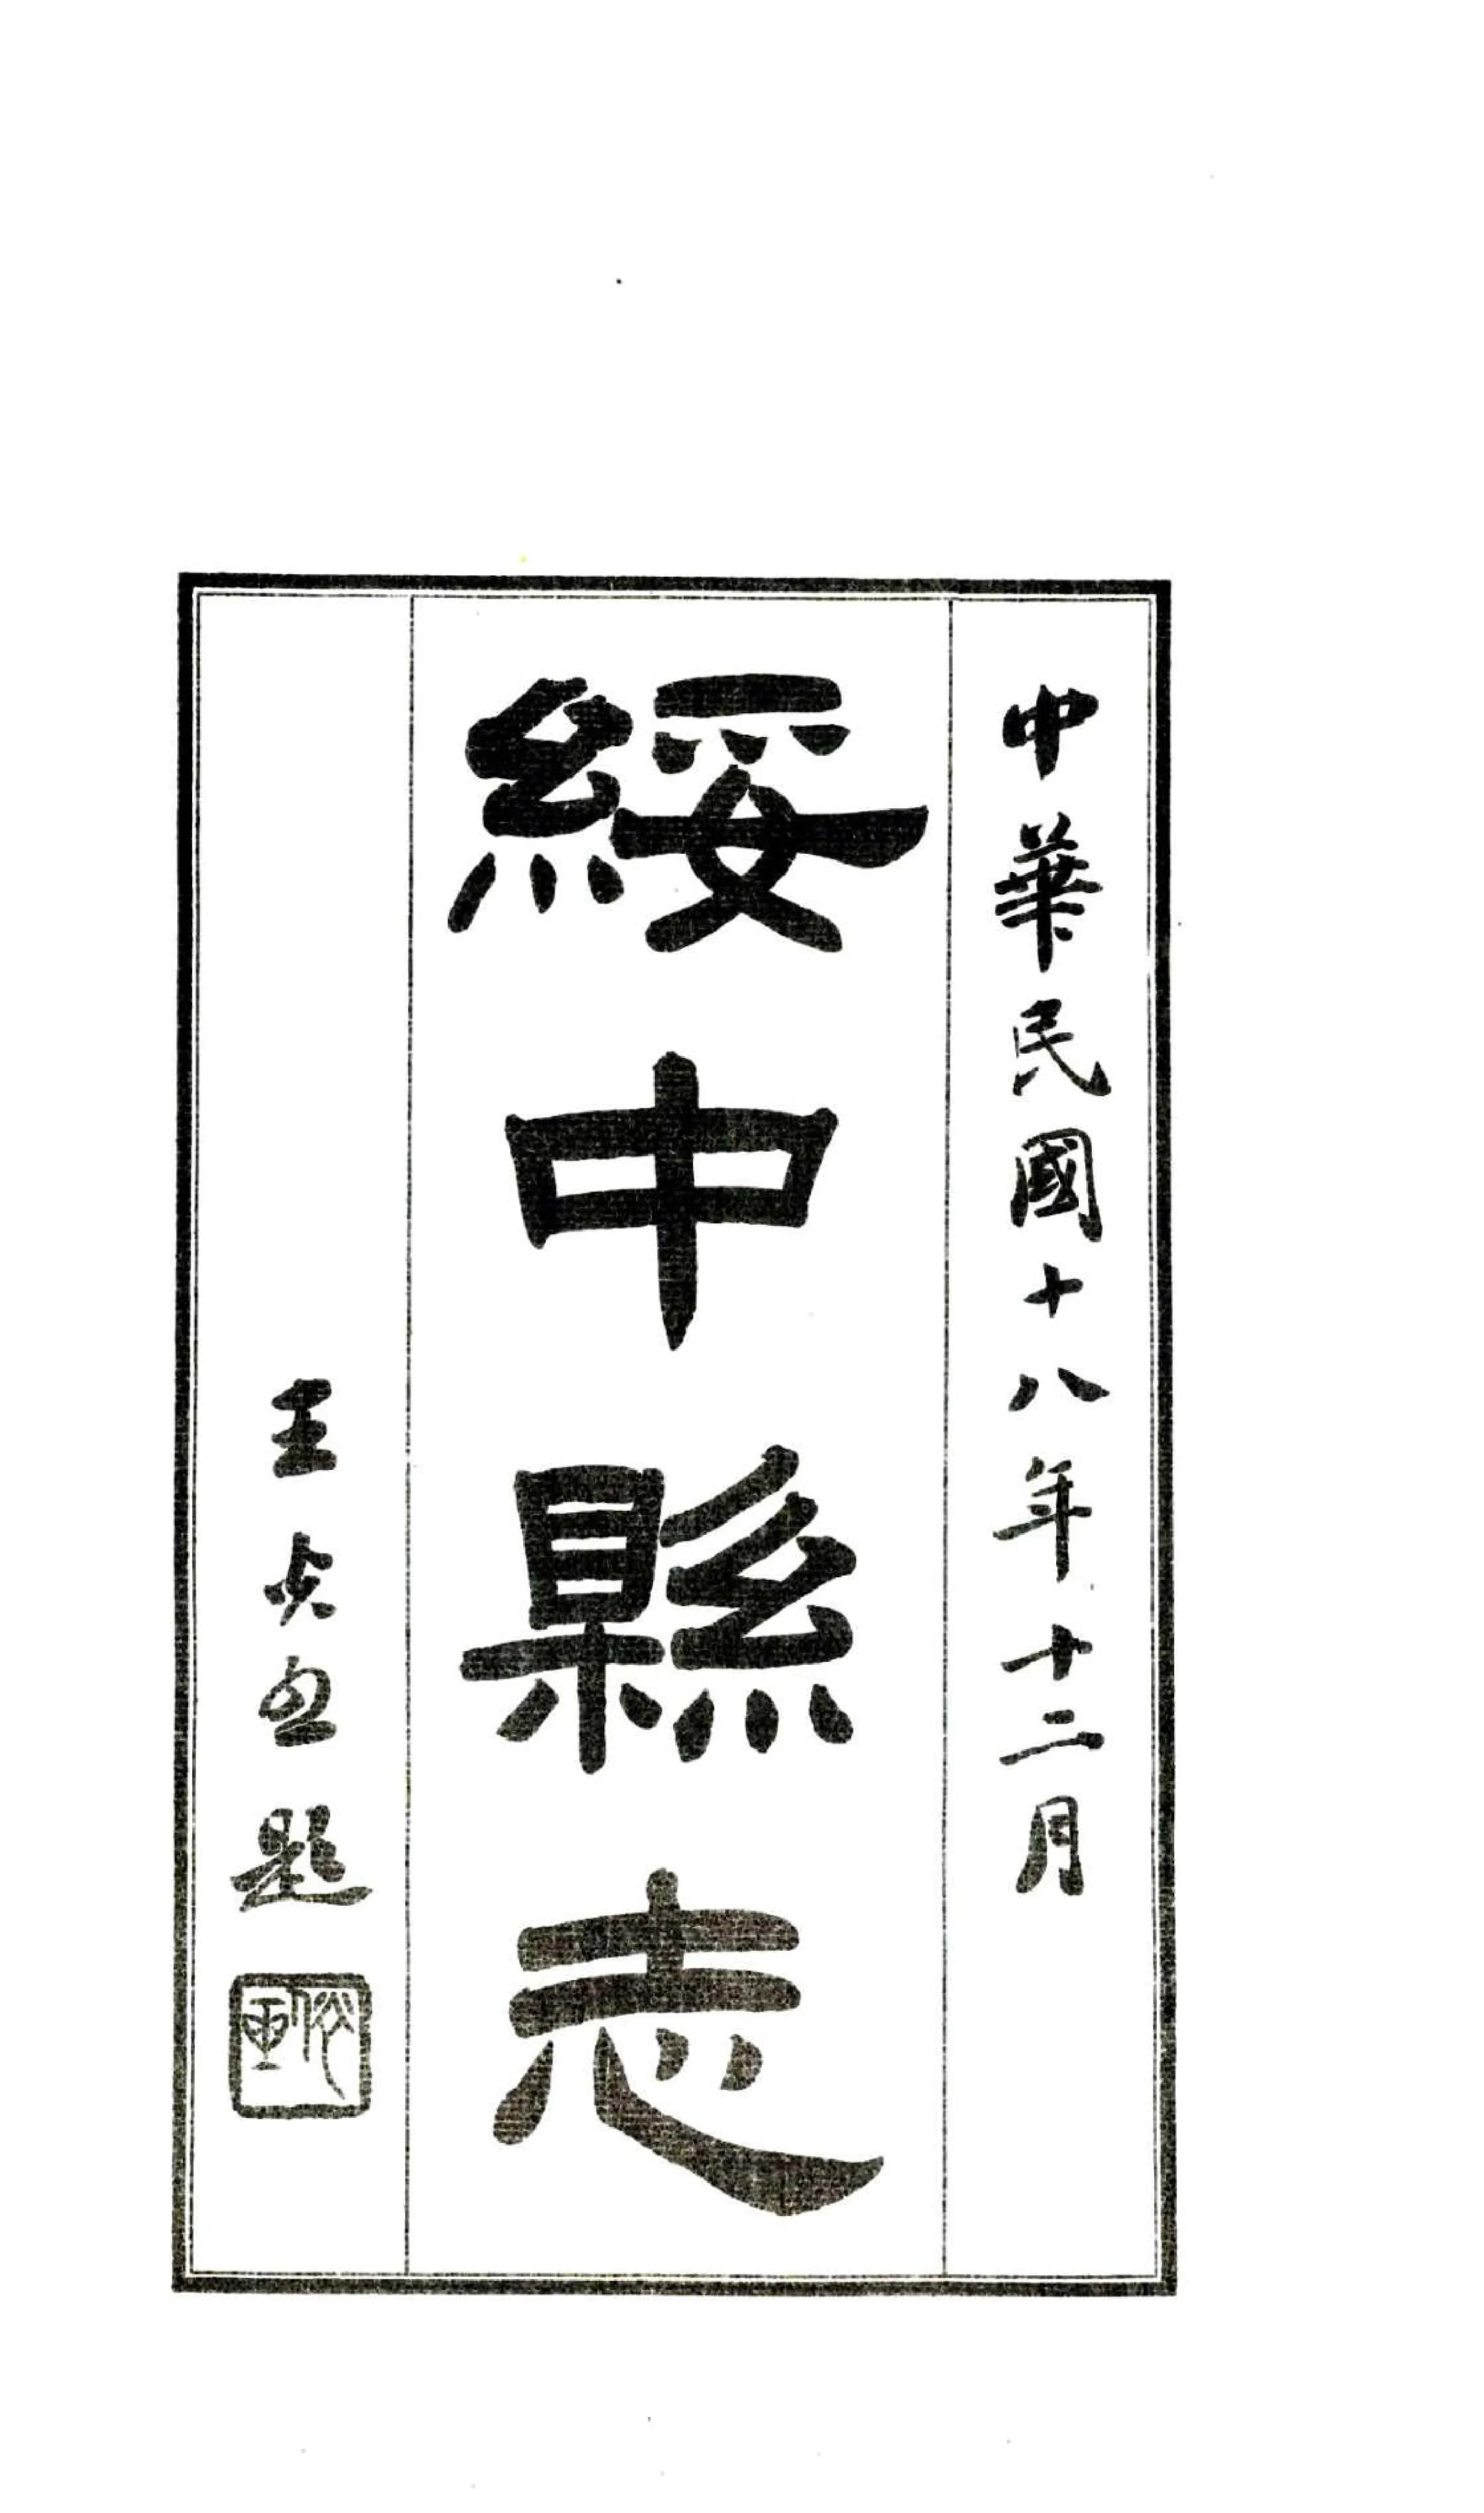 中華民國十八年十二月
綏中縣志
王 題